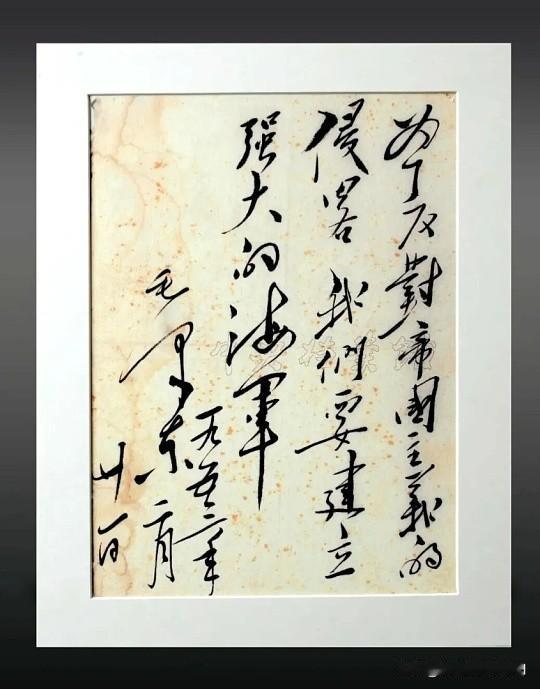 为了反對帝國主義的
侵畧 我們要建立
强大的海軍
毛澤东
一九五三年
二月
廿一日